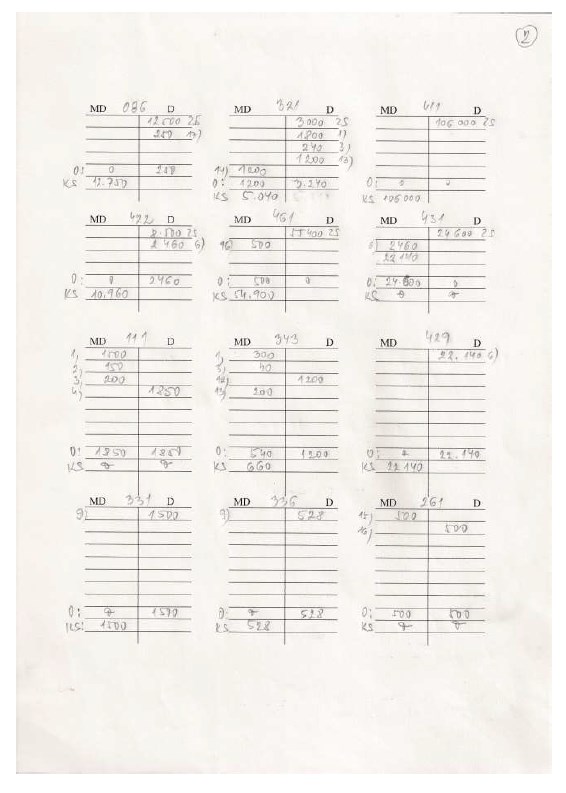 2
MD 086 D
12 500 ZS
250 17)
0: 0 250
KS 12.750
MD 321 D
3000 ZS
1800 1)
240 3)
1200 13)
14) 1200
0: 1200 3.240
KS 5.040
MD 411 D
106 000 ZS
0: 0 0
KS 106000
MD 422 D
8.500 ZS
2 460 6)
0: 0 2460
KS 10.960
MD 461 D
55 400 ZS
16) 500
0: 500 0
KS 54.900
MD 431 D
24 600 ZS
6) 2460
22 140
0: 24.600 0
KS 0 0
MD 111 D
1, 1500
2, 150
3, 200
4) 1850
0: 1850 1850
KS 0 0
MD 343 D
1, 300
3, 40
12) 1200
13) 200
0: 540 1200
KS 660
MD 429 D
22.140 6)
0: 0 22.140
KS 22 140
MD 331 D
9) 1500
0: 0 1500
KS: 1500
MD 336 D
9) 528
0: 0 528
KS 528
MD 261 D
15) 500
16) 500
0: 500 500
KS 0 0